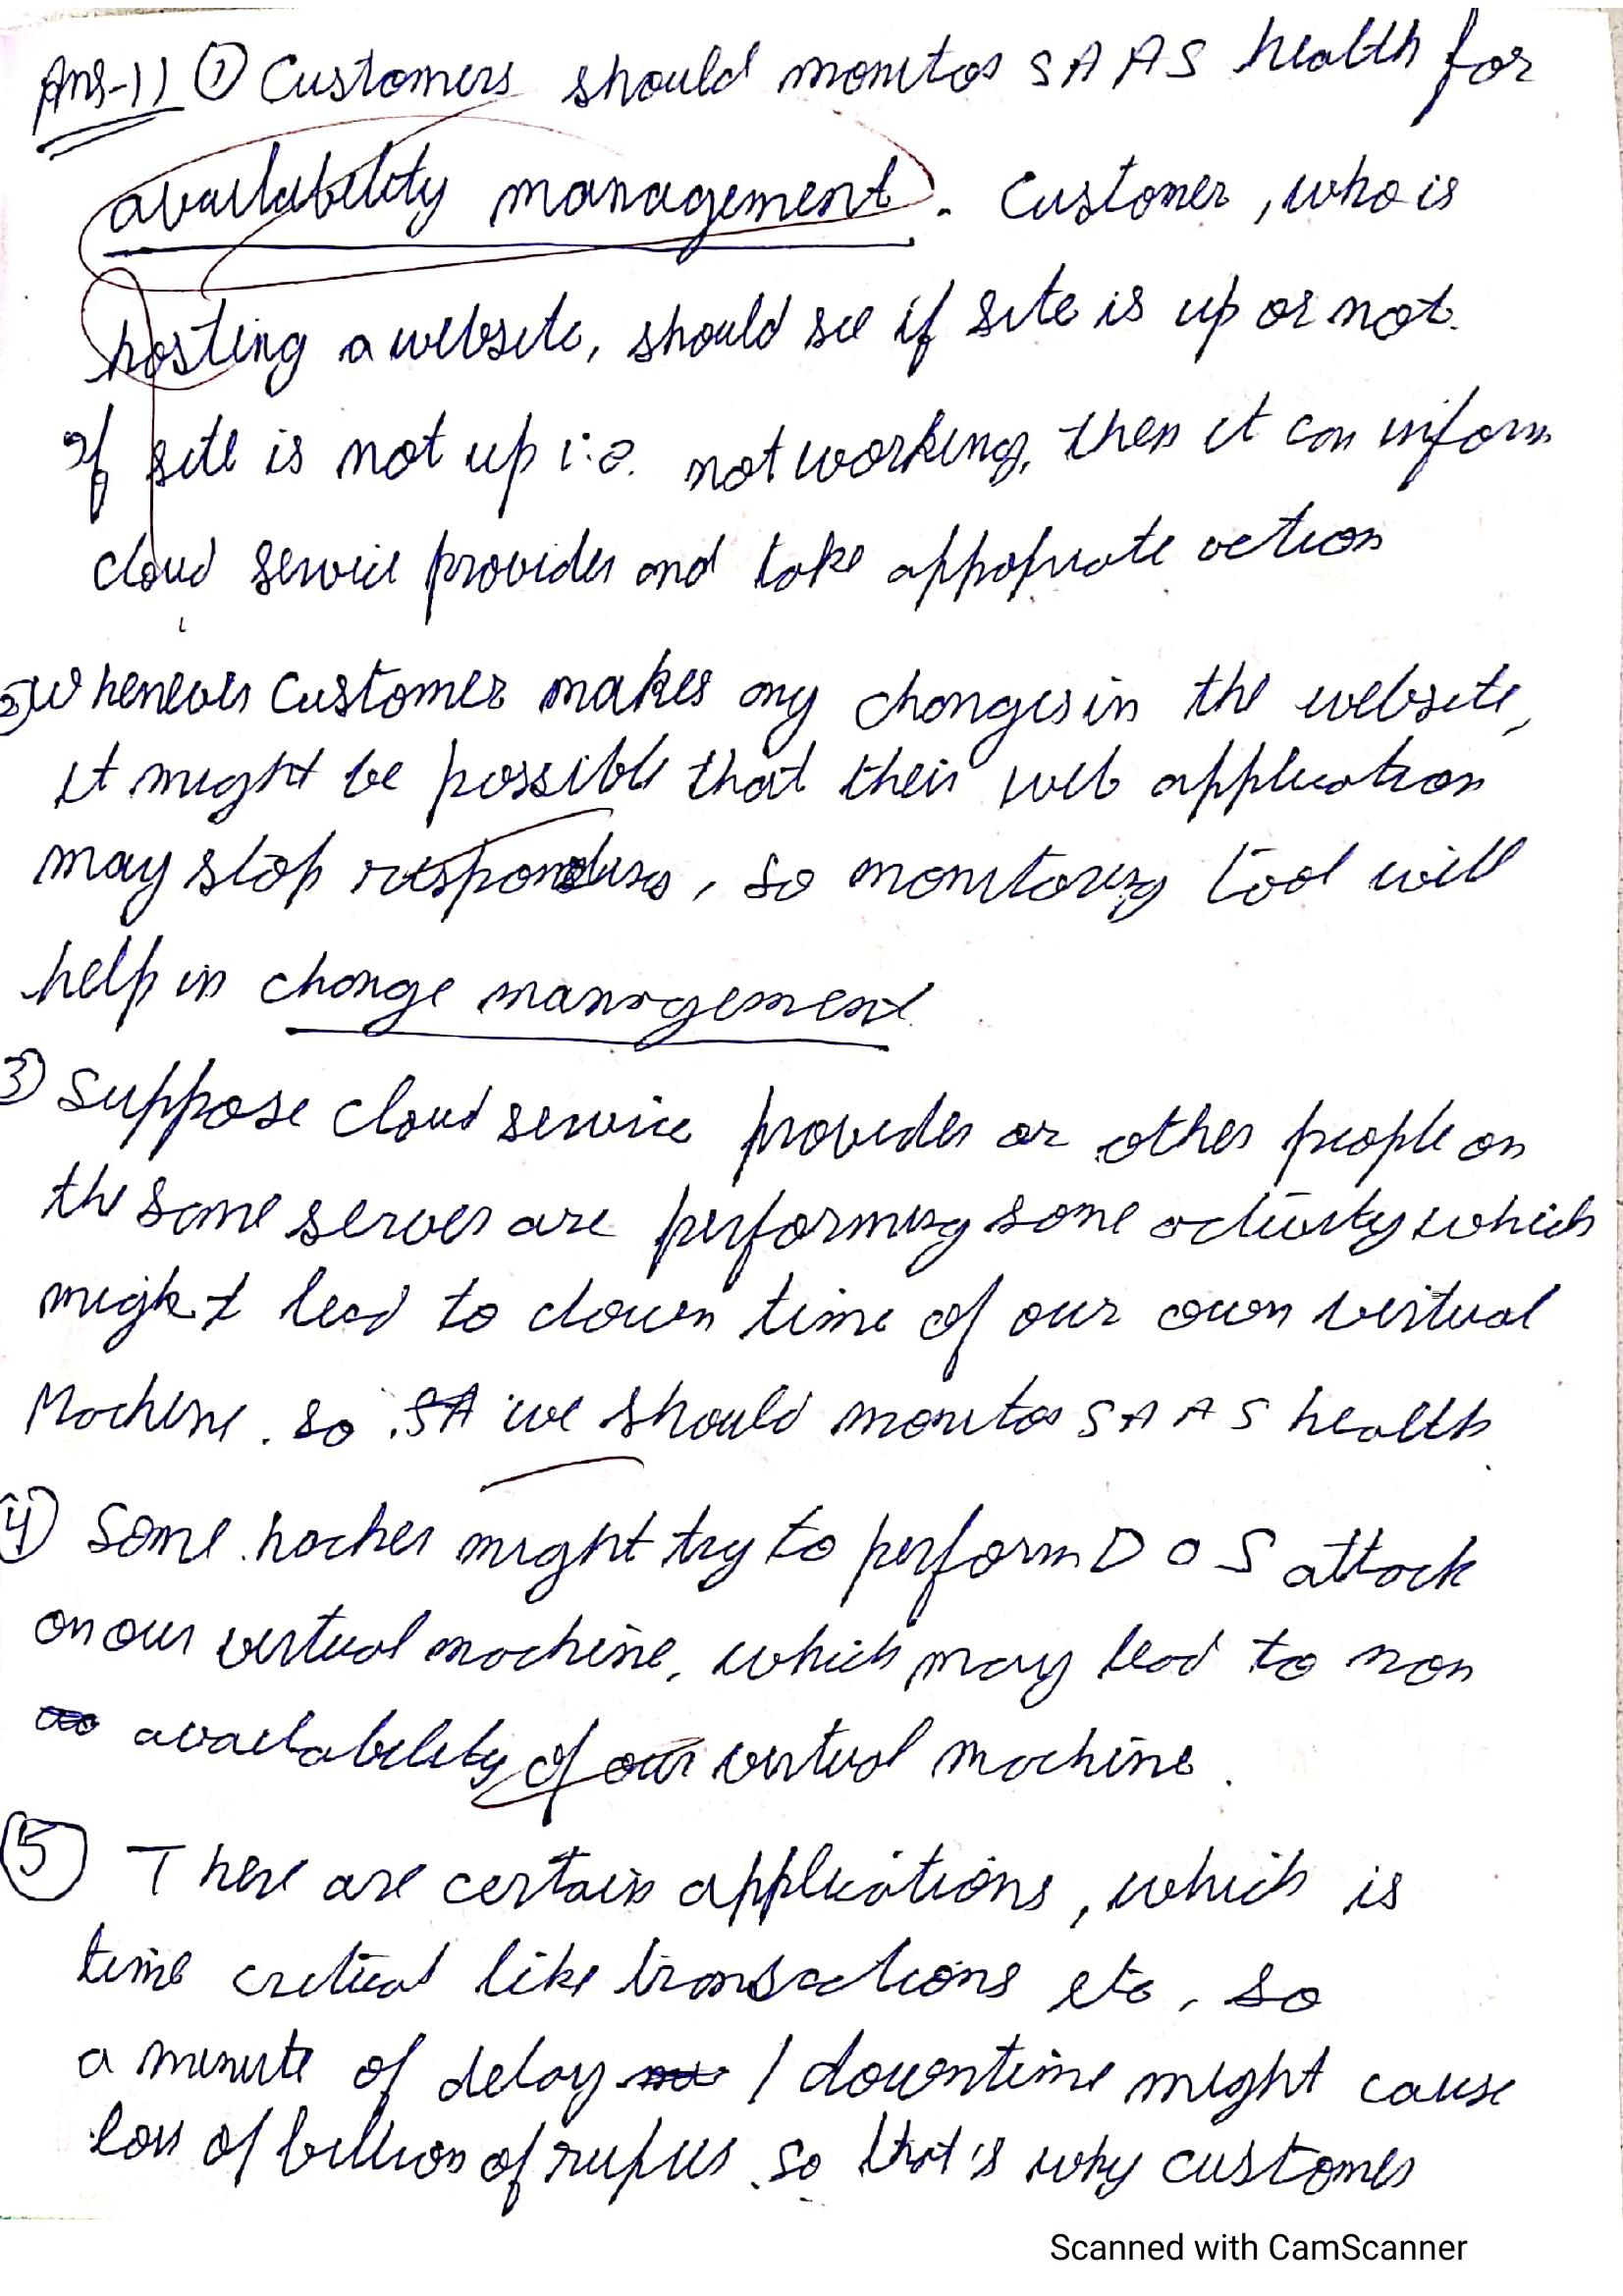 Ans-11 ① Customers should monitor SAAS health for
availability management. Customer, who is
hosting a website, should see if site is up or not.
If site is not up i.e. not working, then it can inform
cloud service provider and take appropriate action
2) Whenever customer makes any changes in the website,
it might be possible that their web application
may stop responding, so monitoring tool will
help in change management
3) Suppose cloud service provider or other people on
the same server are performing some activity which
might lead to down time of our own virtual
Machine. so we should monitor SAAS health.
4) Some hacker might try to perform DOS attack
on our virtual machine, which may lead to non
availability of our virtual machine.
5) There are certain applications, which is
time critical like transactions etc, so
a minute of delay / downtime might cause
loss of billion of rupees. so that's why customer
Scanned with CamScanner